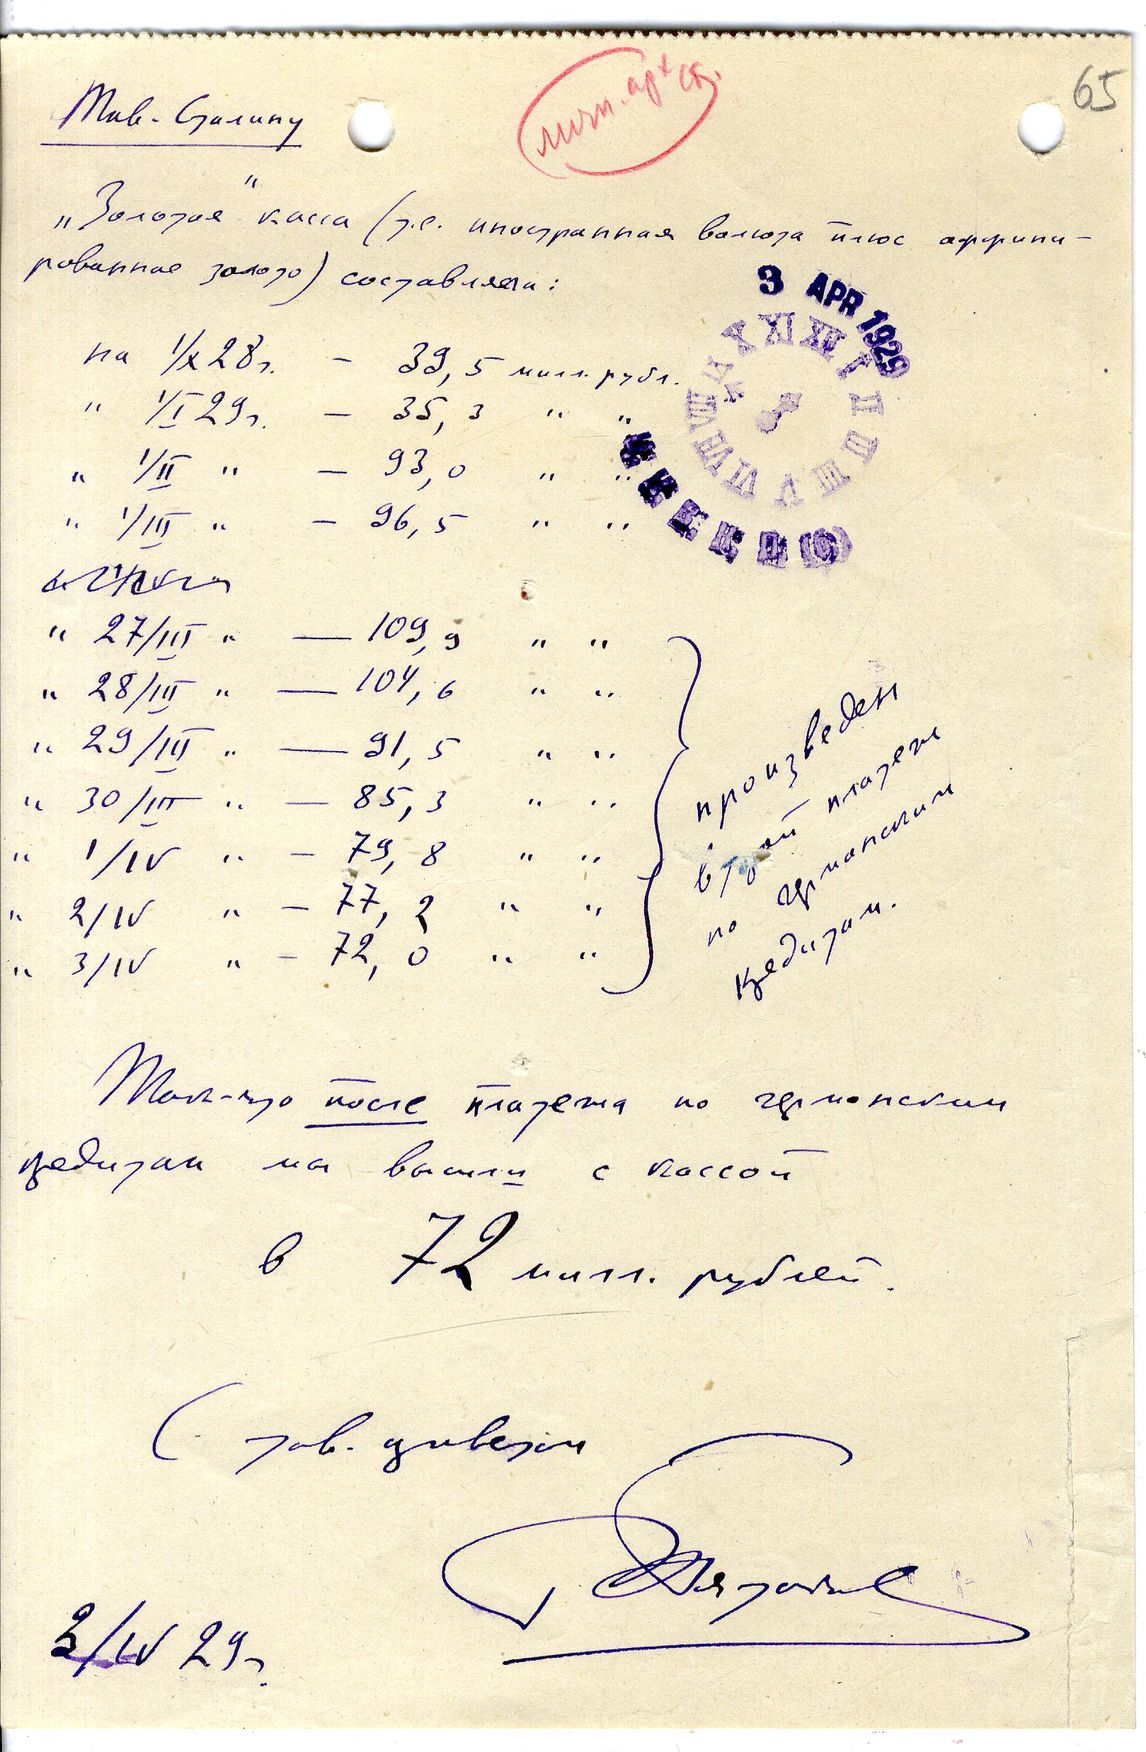 65
личн. арх. Ст.
Тов. Сталину
„Золотая" касса (т.е. иностранная валюта плюс аффини-
рованное золото) составляла:
3 APR 1929
на 1/X 28 г. – 39,5 милл. рубл.
" 1/I 29 г. – 35,3 " "
" 1/II " – 93,0 " "
" 1/III " – 96,5 " "
" 27/III " — 109,9 " "
" 28/III " — 104,6 " "
" 29/III " — 91,5 " "
" 30/III " – 85,3 " "
" 1/IV " – 79,8 " "
" 2/IV " – 77,2 " "
" 3/IV " – 72,0 " "
произведен
второй платеж
по германским
кредитам.
Так-что после платежа по германским
кредитам мы вышли с кассой
в 72 милл. рублей.
С тов. приветом
Пятаков
3/IV 29 г.